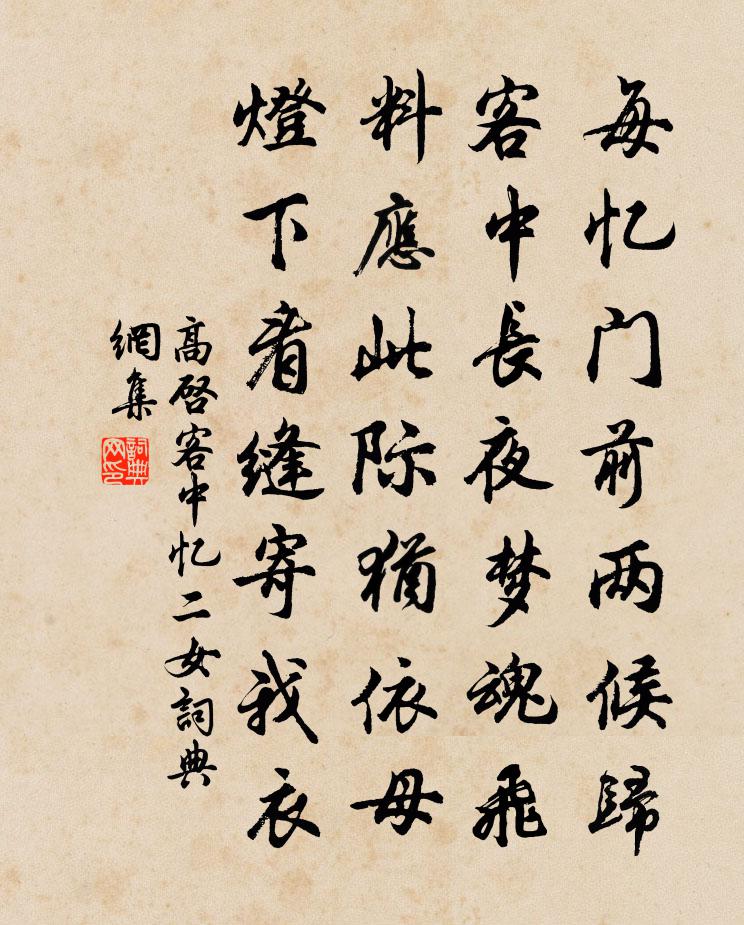 每忆门前两候歸
客中長夜梦魂飛
料應此际猶依母
燈下看縫寄我衣
高啓客中忆二女詞典
網集
詞典网印